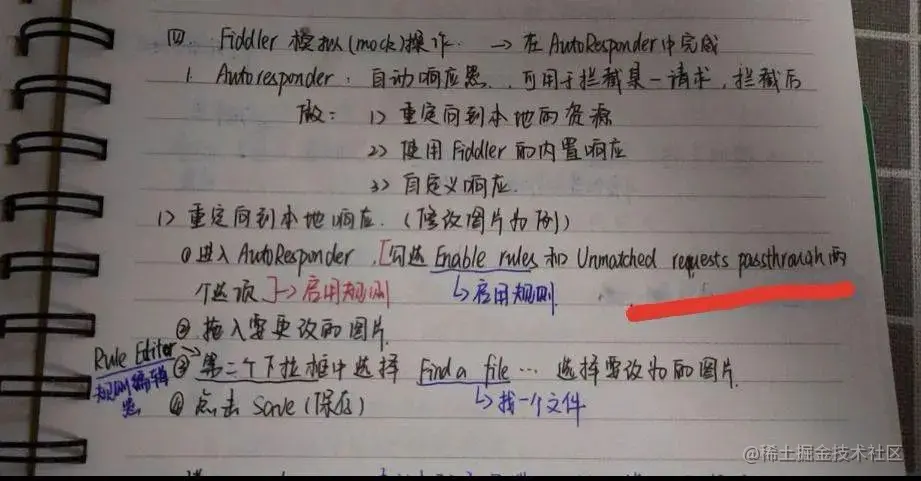 四. Fiddler 模拟(mock)操作. → 在AutoResponder中完成
1. Autoresponder. 自动响应器. 可用于拦截某一请求, 拦截后
做: 1> 重定向到本地的资源
2> 使用Fiddler 的内置响应
3> 自定义响应.
1> 重定向到本地响应. (修改图片为例)
①进入 AutoResponder, [勾选 Enable rules 和 Unmatched requests passthrough 两
个选项]→启用规则 ↳启用规则
② 拖入需更改的图片.
Rule Editor → ③ 第二个下拉框中选择 Find a file … 选择要改为的图片.
规则编辑器
↳找一个文件
④ 点击 Save (保存)
@稀土掘金技术社区